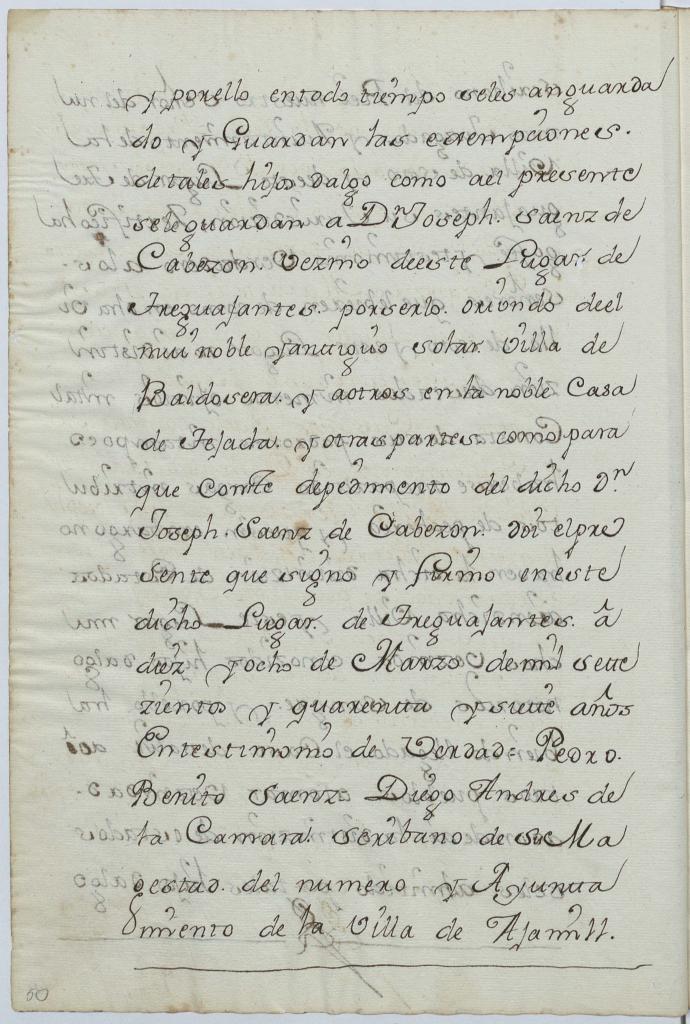 y porello entodo tiempo seles anguarda
do y Guardan las esempciones.
detales hijos dalgo como ael presente
seleguardan a Dn Joseph. Saenz de
Cabezon. Vezino deeste Lugar. de
Treguajantes. porserlo. oriundo deel
mui noble yantiguo solar. Villa de
Baldosera. y aotros en la noble Casa
de Tejada. yotras partes. como para
que Conste depedimento del dicho Dn.
Joseph. Saenz de Cabezon. doi elpre
sente que signo y firmo eneste
dicho Lugar. de Treguajantes. â
diez yocho de Marzo demil sete
zientos y quarenta ysiete años
Entestimonio de Verdad = Pedro.
Benito Saenz Diego Andres de
la Camara. scribano de su Ma
gestad. del numero y Ayunta
miento de la Villa de Ajamill.
50